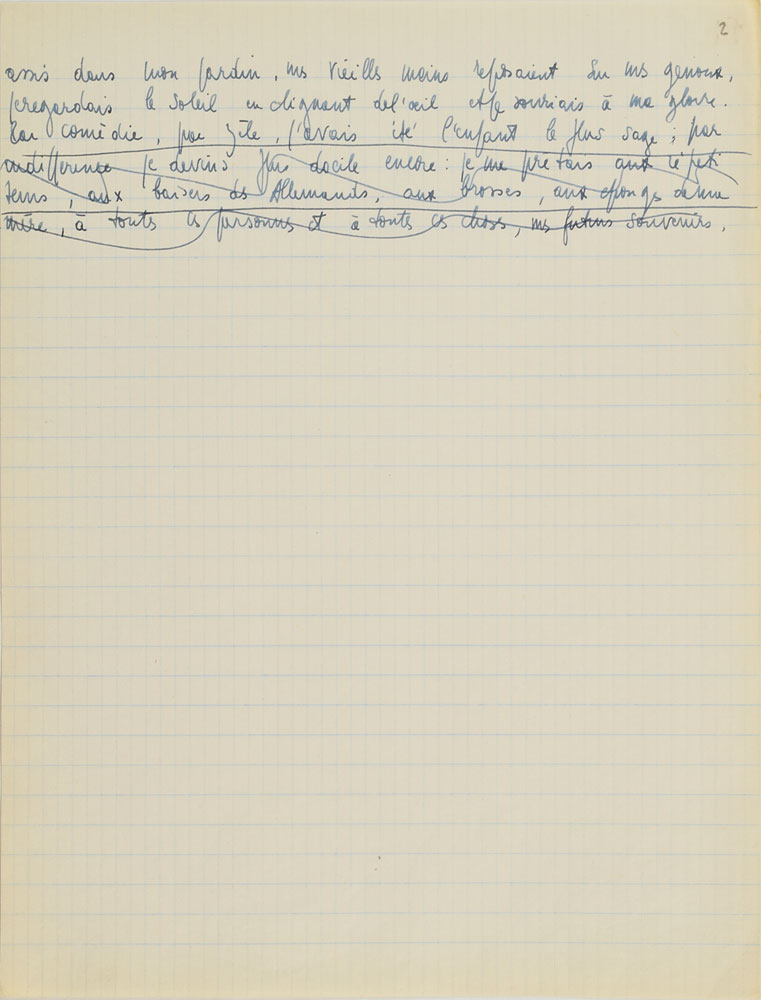 2
assis dans mon jardin, mes vieilles mains reposaient sur mes genoux,
je regardais le soleil en clignant de l'œil et je souriais à ma gloire.
Par comédie, par zèle, j'avais été l'enfant le plus sage ; par
indifférence je devins plus docile encore : je me prêtais aux répéti
tions, aux baisers des Allemands, aux brosses, aux éponges de ma
mère, à toutes les personnes et à toutes les choses, mes futurs souvenirs.